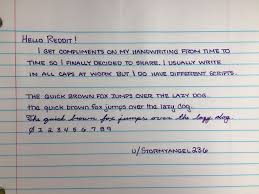 HELLO REDDIT!
I GET COMPLIMENTS ON MY HANDWRITING FROM TIME TO
TIME SO I FINALLY DECIDED TO SHARE. I USUALLY WRITE
IN ALL CAPS AT WORK BUT I DO HAVE DIFFERENT SCRIPTS.
THE QUICK BROWN FOX JUMPS OVER THE LAZY DOG.
the quick brown fox jumps over the lazy dog.
The quick brown fox jumps over the lazy dog.
0 1 2 3 4 5 6 7 8 9
u/STORMYANGEL236